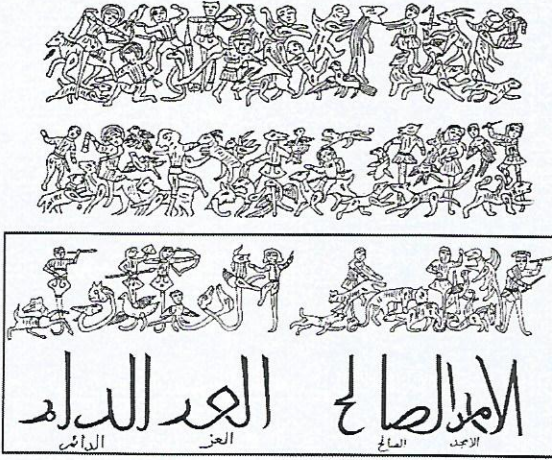 الامد الصالح العر الدام
الامجد الصالح العز الدائم